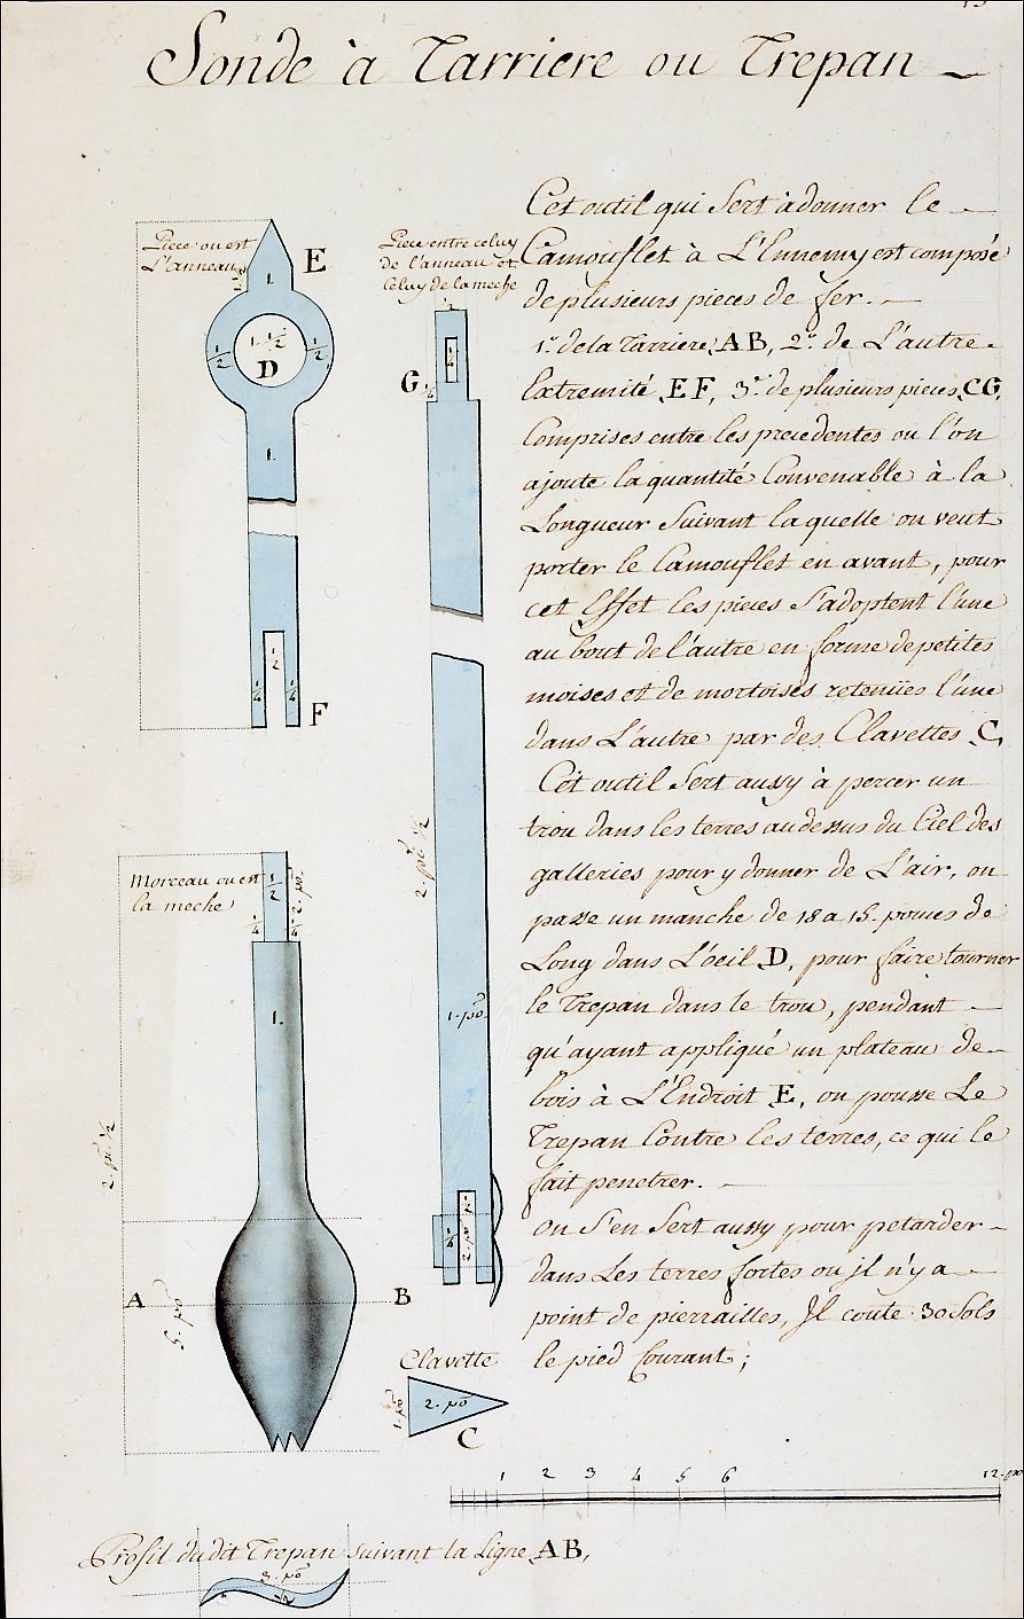 Sonde à Tarriere ou Trepan
Piece ou est
L'anneau
E
1.
1. 1/2
1/2
1/2
D
1.
1/2
1/4
1/4
F
Piece entre celuy
de l'anneau et
Celuy de la meche
G
1/2
2. pi. 1/2
1. po.
1/4
2. po.
Cet outil qui Sert à donner le
Camouflet à L'Ennemy est composé
de plusieurs pieces de fer.
1.º de la Tarriere, AB, 2.º de L'autre
Extremité, EF, 3.º de plusieurs pieces, CG,
Comprises entre les precedentes ou l'on
ajoute la quantité Convenable à la
Longueur Suivant laquelle on veut
porter le Camouflet en avant, pour
cet Effet les pieces S'adoptent l'une
au bout de l'autre en forme de petites
moises et de mortoises retenües l'une
dans L'autre par des Clavettes C,
Cet outil Sert aussy à percer un
trou dans les terres au dessus du Ciel des
galleries pour y donner de L'air, on
passe un manche de 18 a 15. pouces de
Long dans L'oeil D, pour faire tourner
le Trepan dans le trou, pendant
qu'ayant appliqué un plateau de
bois à L'Endroit E, on pousse Le
Trepan Contre les terres, ce qui le
fait penetrer.
on S'en Sert aussy pour petarder
dans Les terres fortes ou jl n'y a
point de pierrailles, Jl coute 30 Sols
le pied Courant;
Morceau ou est
la meche
1/2
2. po.
1/4
1/4
1.
2. pi. 1/2
A
B
5. po
Clavette
1. po
2. po
C
1 2 3 4 5 6 12. po
Profil du dit Trepan suivant la Ligne AB,
3. po